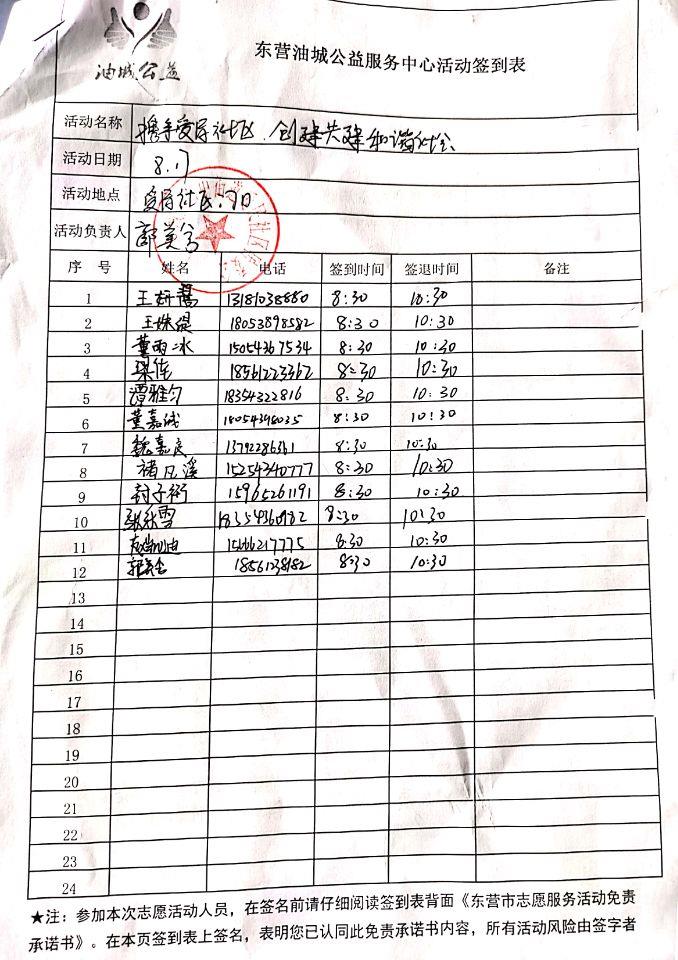 油城公益
东营油城公益服务中心活动签到表
活动名称 携手爱厚社区、创建共建和谐社会
活动日期 8.17
活动地点 社区门口
活动负责人 郭美
序 号 姓名 电话 签到时间 签退时间 备注
1 王妍 13181038880 8:30 10:30
2 王姝 18053898582 8:30 10:30
3 董雨冰 15054367534 8:30 10:30
4 梁伟 18561223362 8:30 10:30
5 谭雅匀 18354322816 8:30 10:30
6 董嘉诚 18054348035 8:30 10:30
7 魏嘉良 13792286361 8:30 10:30
8 褚凡溪 15254340777 8:30 10:30
9 封子衡 15965261191 8:30 10:30
10 张秋雪 18354360982 8:30 10:30
11 15666217775 8:30 10:30
12 18561238182 8:30 10:30
13
14
15
16
17
18
19
20
21
22
23
24
★注：参加本次志愿活动人员，在签名前请仔细阅读签到表背面《东营市志愿服务活动免责
承诺书》。在本页签到表上签名，表明您已认同此免责承诺书内容，所有活动风险由签字者